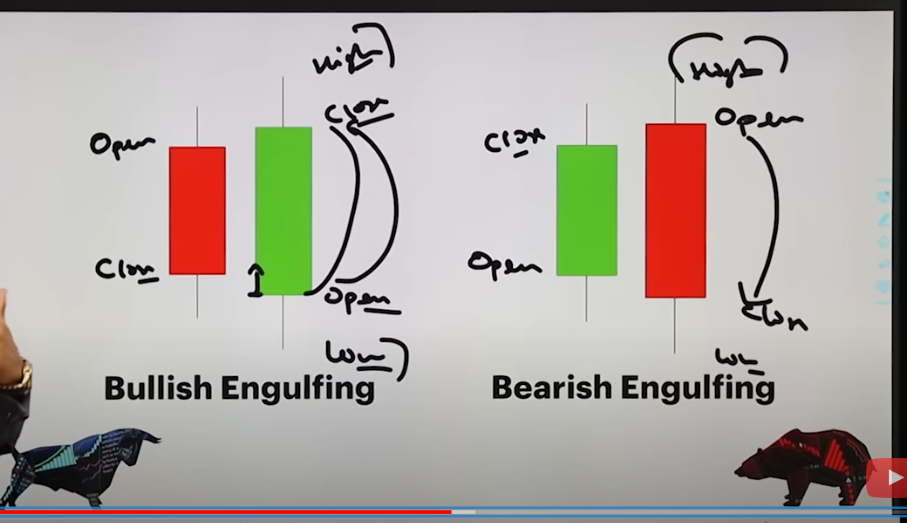 High
Close
Open
Close
Open
Low
Bullish Engulfing
High
Open
Close
Open
Close
Low
Bearish Engulfing